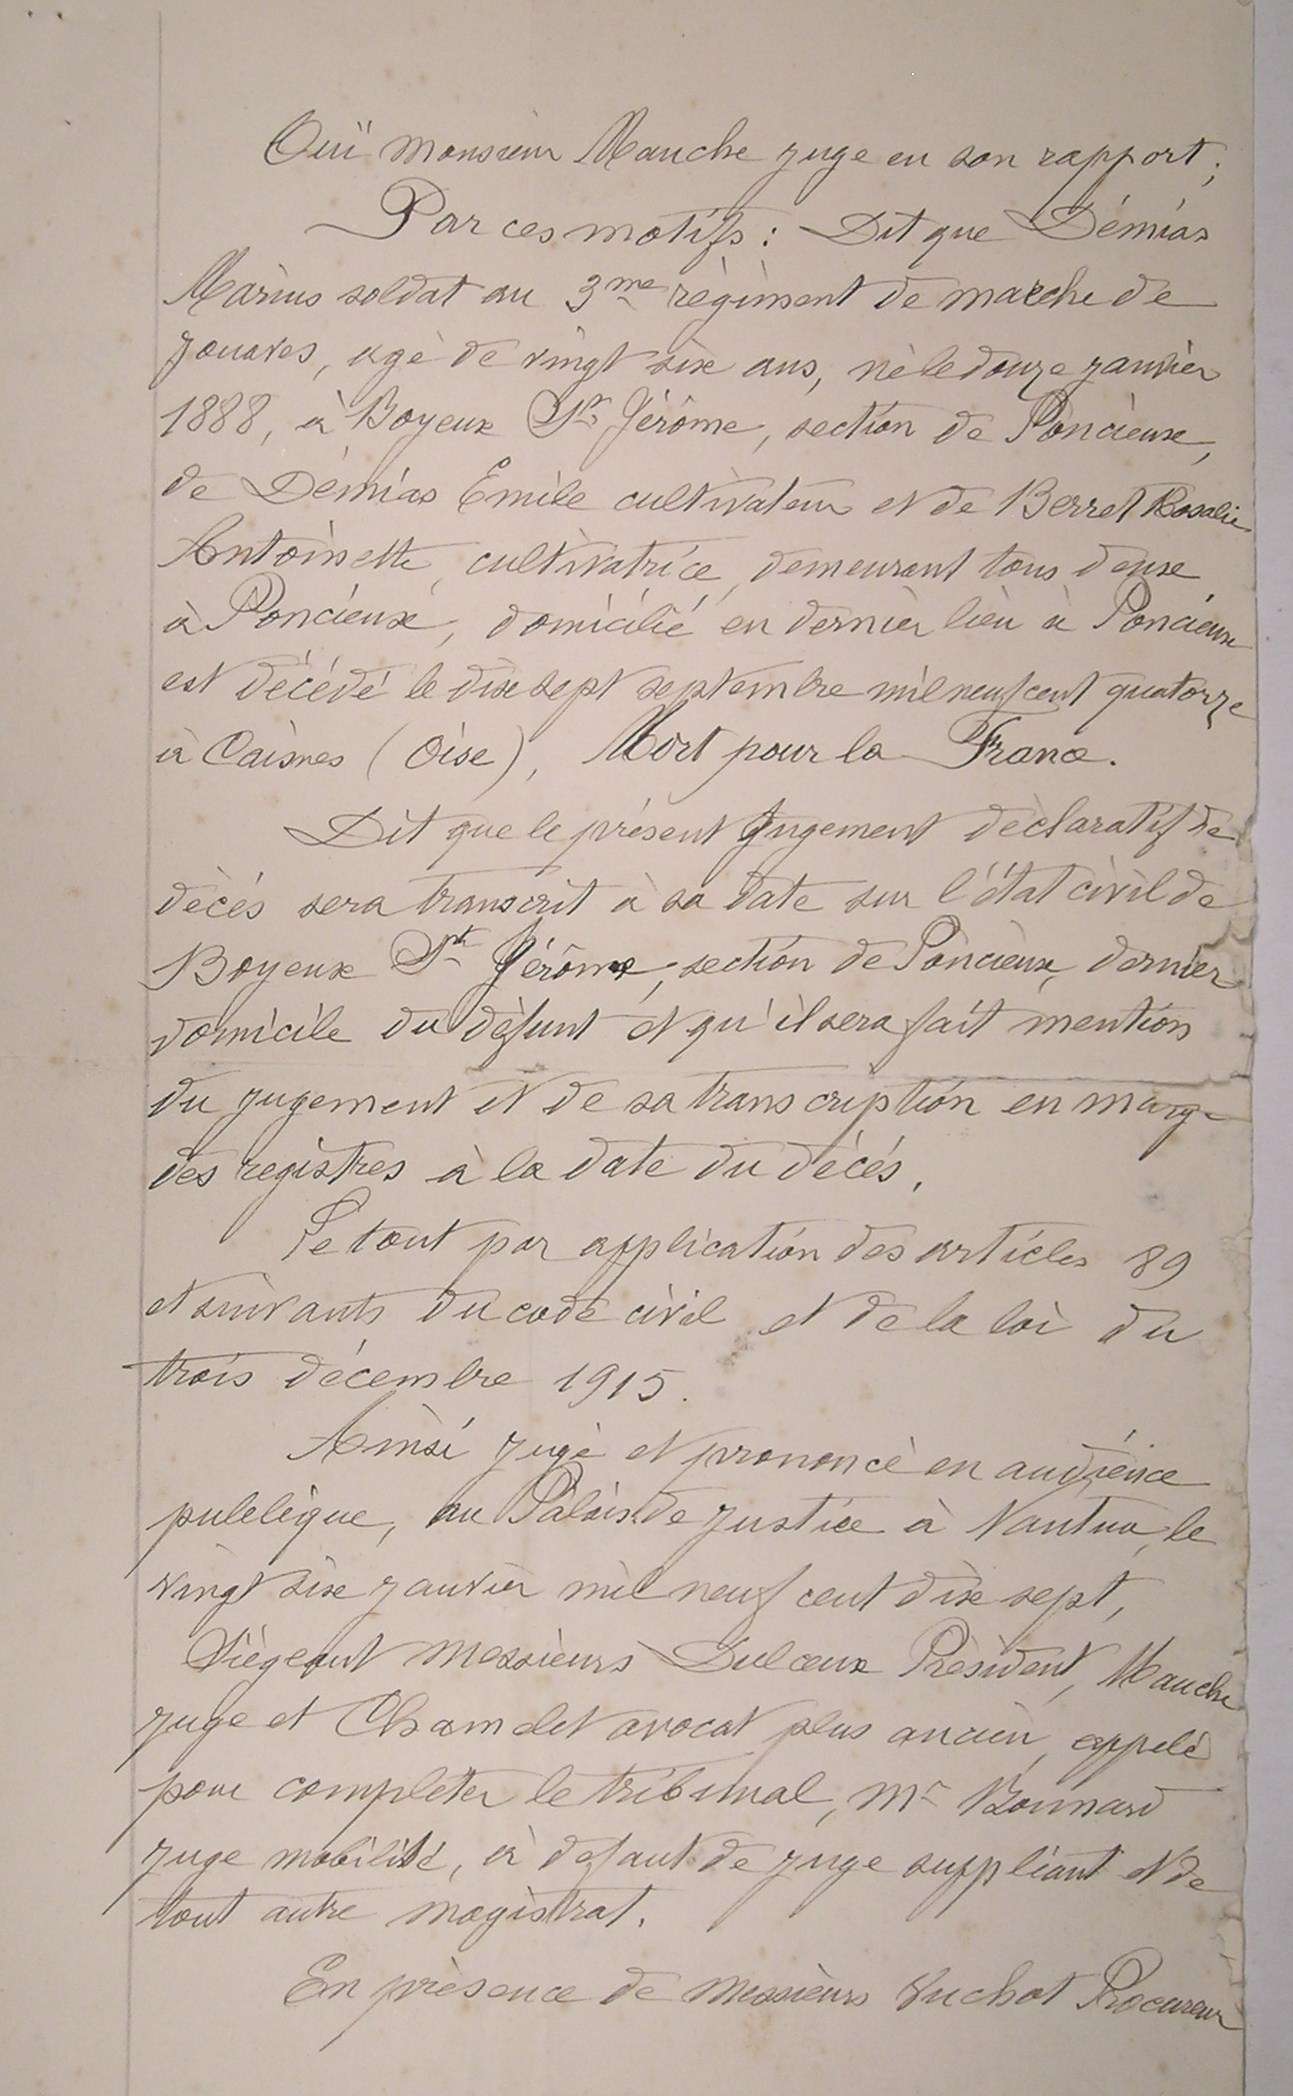 Ouï Monsieur Manche juge en son rapport;
Par ces motifs : Dit que Démias
Marius soldat au 3me régiment de marche de
zouaves, agé de vingt six ans, né le douze janvier
1888, à Boyeux St Jérôme, section de Poncieux,
de Démias Emile cultivateur et de Berret Rosalie
Antoinette, cultivatrice, demeurant tous deux
à Poncieux, domicilié en dernier lieu à Poncieux
est décédé le dix sept septembre mil neuf cent quatorze
à Caisnes (Oise), Mort pour la France.
Dit que le présent Jugement déclaratif de
décès sera transcrit à sa date sur l'état civil de
Boyeux St Jérôme, section de Poncieux, dernier
domicile du défunt et qu'il sera fait mention
du jugement et de sa transcription en marge
des registres à la date du décés.
Le tout par application des articles 89
et suivants du code civil et de la loi du
trois décembre 1915.
Ainsi jugé et prononcé en audience
publique, au Palais de Justice à Nantua, le
vingt six janvier mil neuf cent dix sept,
Siégeant Messieurs Président, Manche
juge et avocat plus ancien, appelé
pour compléter le tribunal, Mr Bonnard
juge mobilisé, à defaut de juge suppliant et de
tout autre magistrat.
En présence de Messieurs Vuchot Procureur